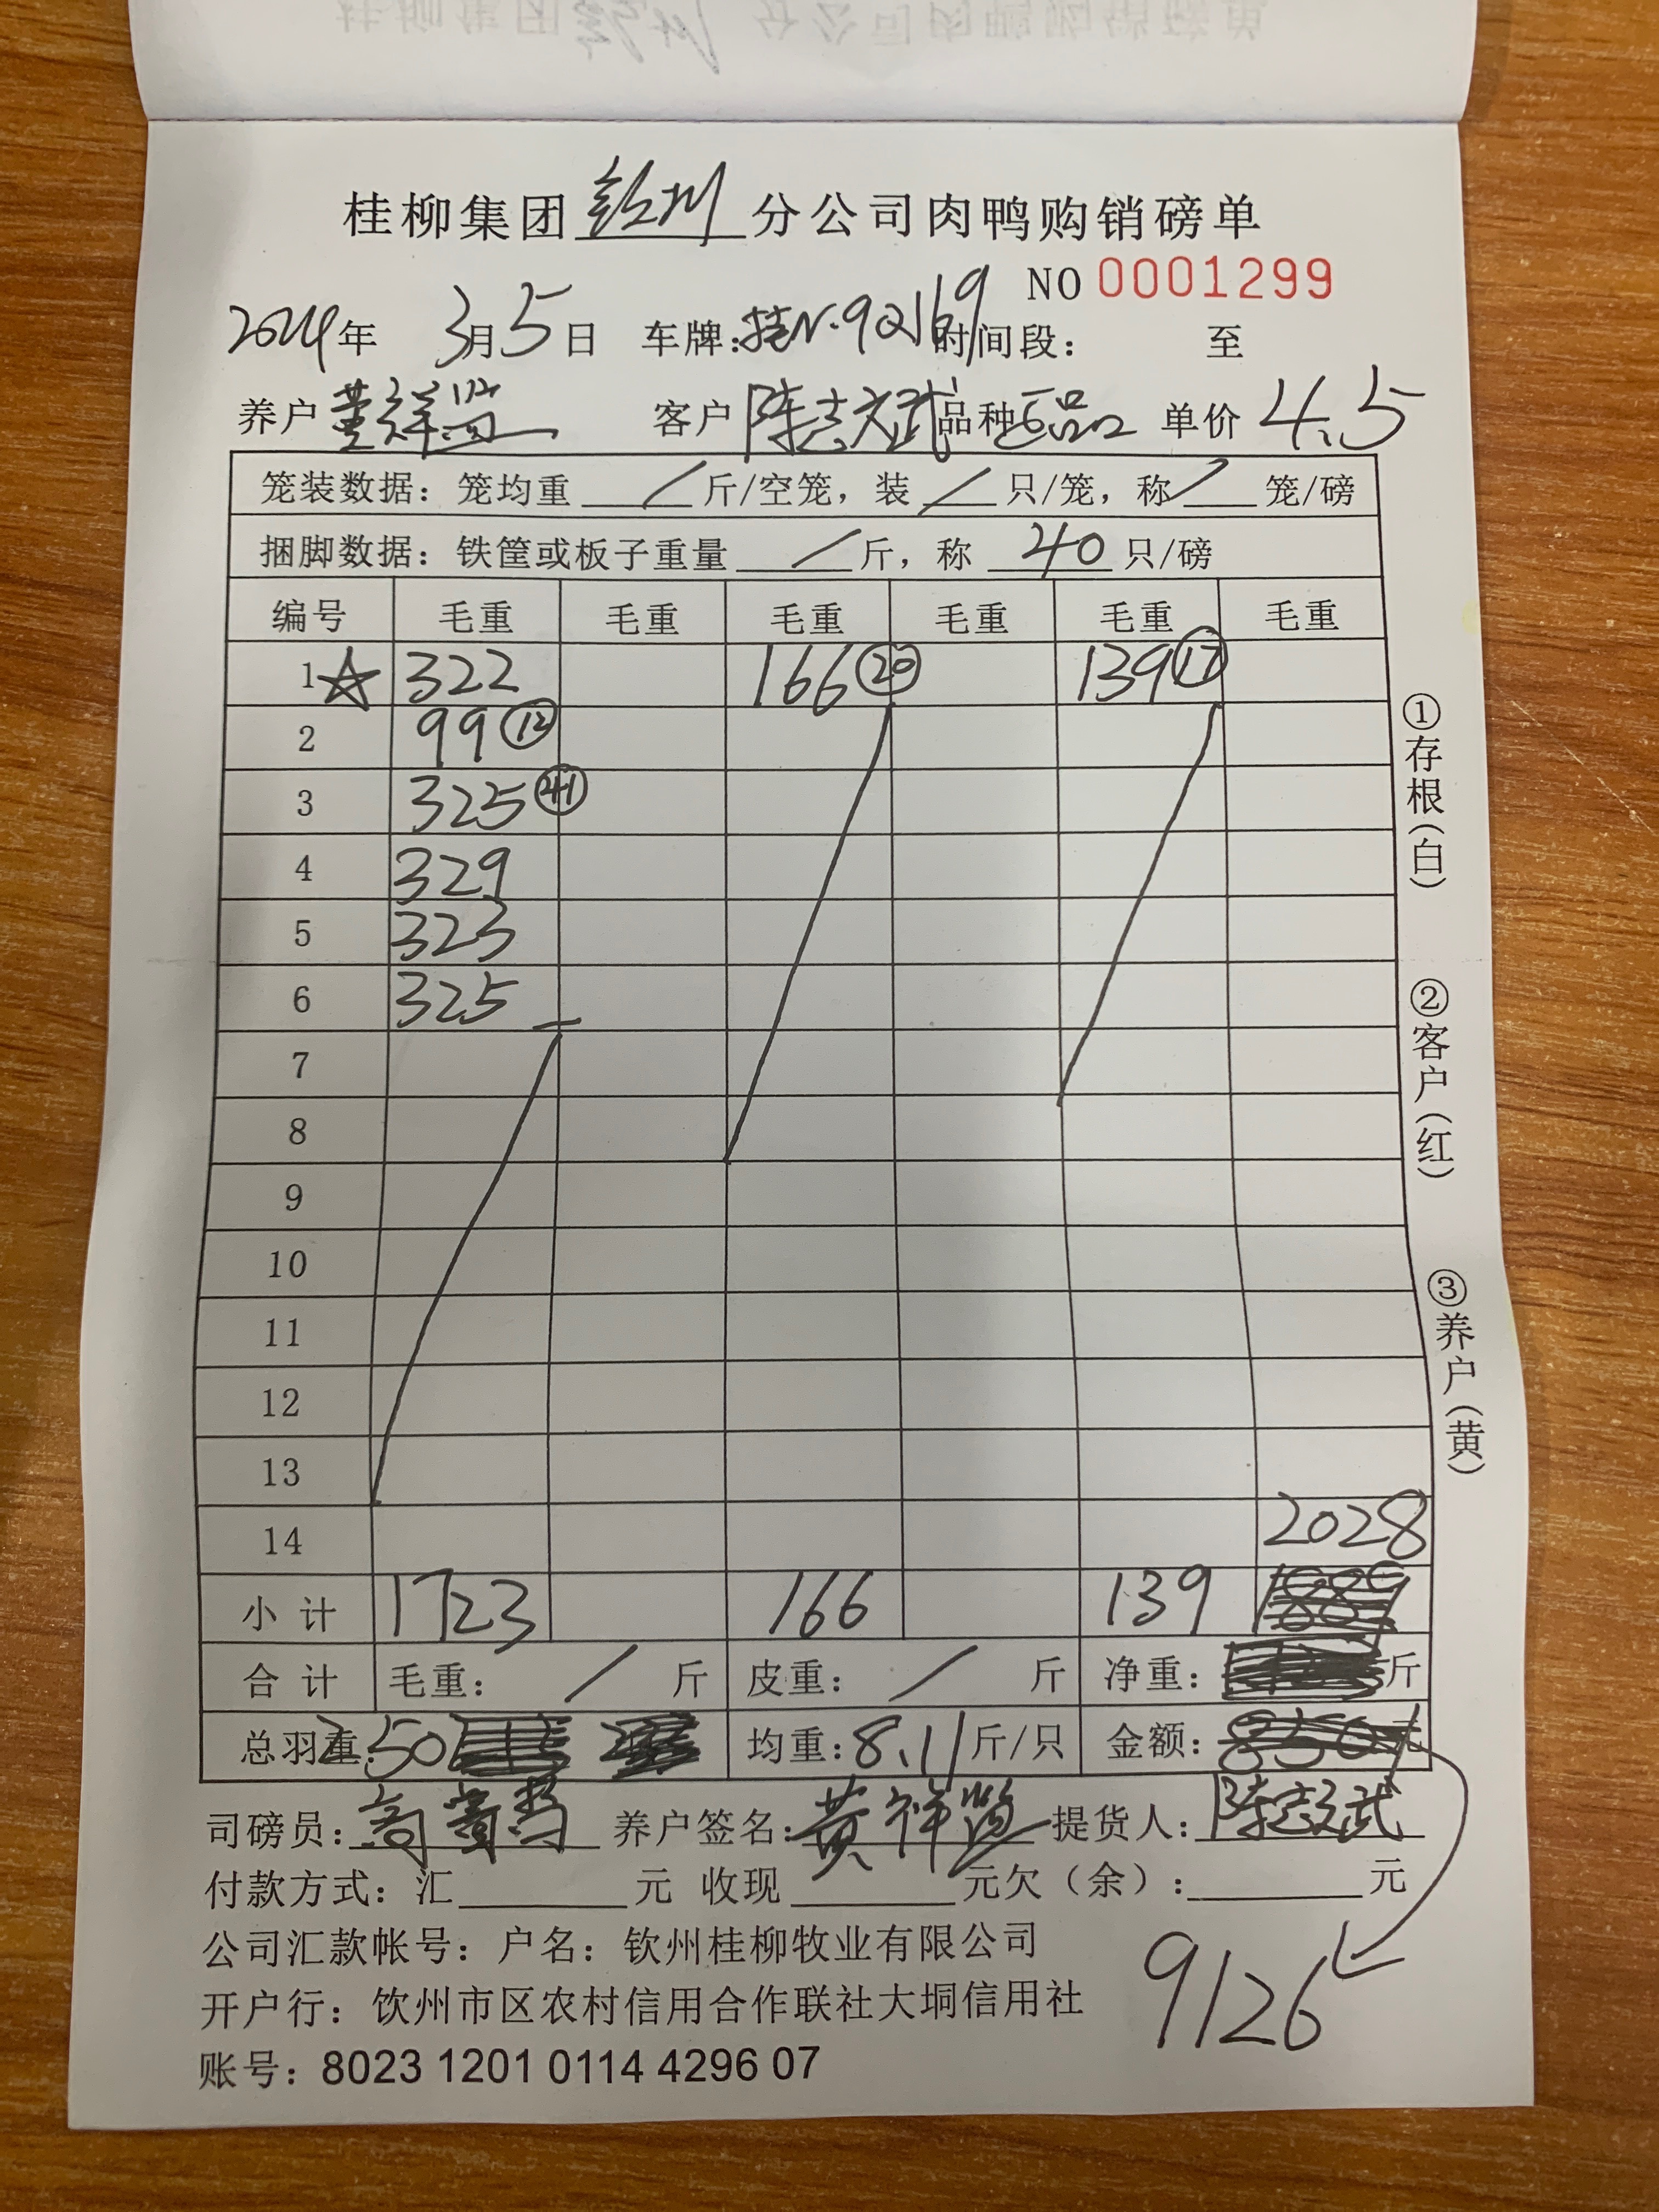 桂柳集团钦州分公司肉鸭购销磅单
NO 0001299
2024年 3月5日 车牌:桂N·92169 时间段: 至
养户 黄祥 客户 陈志斌 品种 品 单价 4.5
笼装数据: 笼均重 / 斤/空笼, 装 / 只/笼, 称 / 笼/磅
捆脚数据: 铁筐或板子重量 / 斤, 称 40 只/磅
编号 毛重 毛重 毛重 毛重 毛重 毛重
1 ☆ 322 166 ⑳ 139 ⑰
2 99 ⑫
3 325 ㊶
4 329
5 323
6 325
7
8
9
10
11
12
13
14 2028
小计 1723 166 139 1889
合计 毛重: / 斤 皮重: / 斤 净重: 斤
总羽重: 250 均重: 8.11 斤/只 金额: 8501 元
司磅员: 养户签名: 黄祥 提货人: 陈志斌
付款方式: 汇 元 收现 元欠(余): 元
公司汇款帐号: 户名: 钦州桂柳牧业有限公司
开户行: 钦州市区农村信用合作联社大垌信用社
账号: 8023 1201 0114 4296 07
9126
①存根(白)
②客户(红)
③养户(黄)